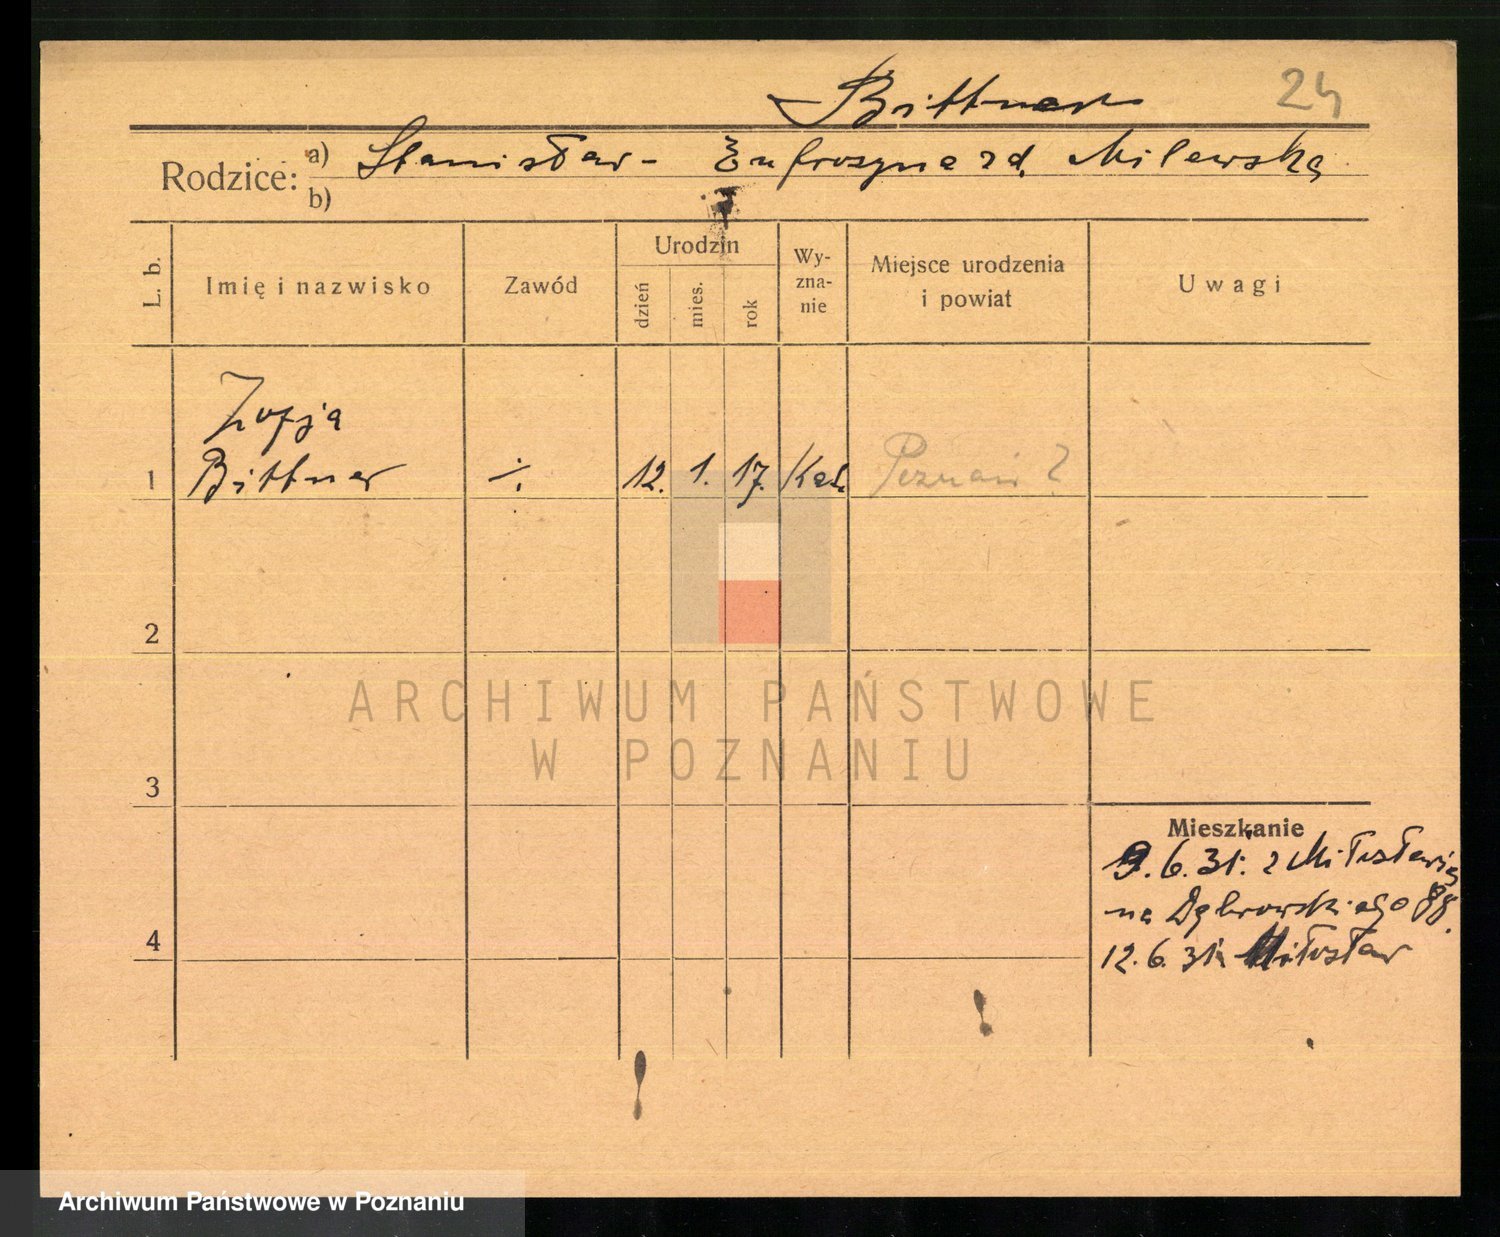 Bittner 24
Rodzice: a) Stanisław - Eufrozyna zd. Milewska
b)
L. b. Imię i nazwisko Zawód Urodzin dzień mies. rok Wy-zna-nie Miejsce urodzenia i powiat Uwagi
Zofja
1 Bittner ÷ 12. 1. 17. Kat. Poznań ?
2
ARCHIWUM PAŃSTWOWE
W POZNANIU
3
Mieszkanie
9.6.31. z Miłosławia
na Dąbrowskiego 88.
4
12.6.31. Miłosław
Archiwum Państwowe w Poznaniu